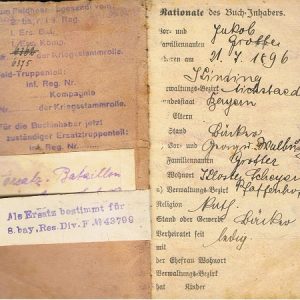 zum Feldheer
I. Ers. Bat.
Komp.
der Kriegsstammrolle.
Feld-Truppenteil:
Inf. Reg. Nr.
Kompagnie
der Kriegsstammrolle.
Für die Buchinhaber jetzt
zuständiger Ersatztruppenteil:
Inf. Reg. Nr.
Ersatz-Bataillon
Als Ersatz bestimmt für
8. bay. Res. Div. F. № 43799
Nationale des Buch-Inhabers.
Vor- und Jakob
Familiennamen
geboren am 21. 7. 1896
Verwaltungs-Bezirk
Bundesstaat Bayern
Eltern
Stand Bäcker
Vor- und Georg u.
Familiennamen
Wohnort Kloster Scheyern
Verwaltungs-Bezirk Pfaffenhofen
Religion Kath.
Stand oder Gewerbe Bäcker
Verheiratet seit
ledig
mit
der Ehefrau Wohnort
Verwaltungs-Bezirk
hat Kinder